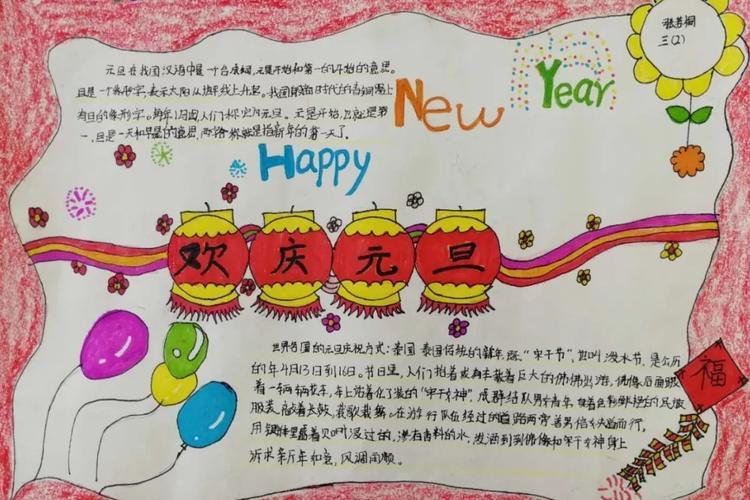 元旦在我国汉语中是一个合成词,元是开始和第一的开始的意思。
旦是一个象形字,表示太阳从地平线上升起。我国
有旦的象形字。每年1月1日人们称为元旦。元是开始,也就是第
一,旦是一天和早晨的意思,两字合称就是指新年的第一天了。
New Year
Happy
三(2)
欢庆元旦
世界各国的元旦庆祝方式:泰国 泰国传统的新年 "宋干节",也叫泼水节,是公历
的年4月13日到16日。节日里,人们抬着 巨大的佛像出游,佛像后面跟
着一辆辆花车,车上站着化了装的"宋干女神",成群结队男女青年 着色彩鲜艳的民族
服装,敲着长鼓,载歌载舞。在游行队伍经过的道路两旁善男信女 而行,
用银 里盛着贝叶浸过的,渗有香料的水,泼洒到到佛像和宋干女神身上
祈求新年如意,风调雨顺。
福